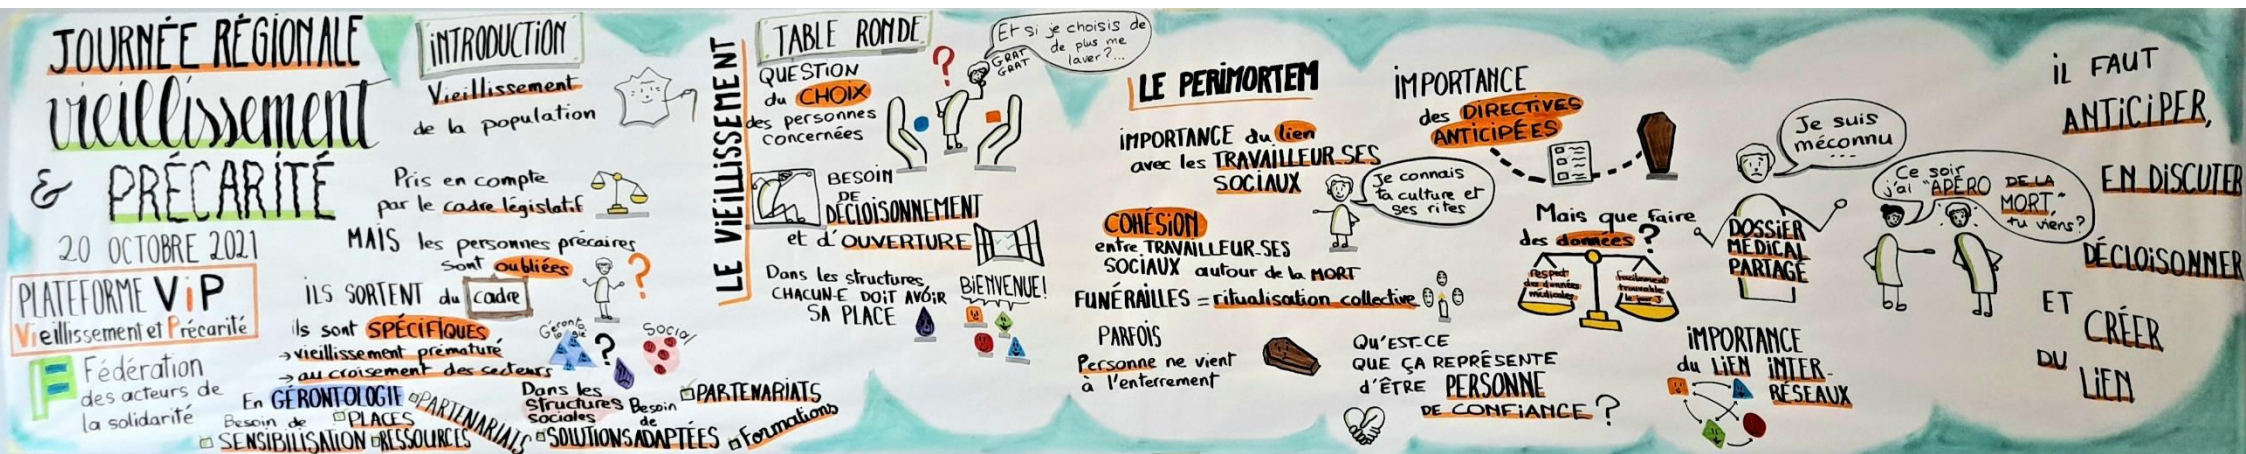 JOURNÉE RÉGIONALE
vieillissement
& PRÉCARITÉ
20 OCTOBRE 2021
PLATEFORME ViP
Vieillissement et Précarité
Fédération
des acteurs de
la solidarité
iNTRODUCTiON
Vieillissement
de la population
Pris en compte
par le cadre législatif
MAiS les personnes précaires
sont oubliées
iLS SORTENT du cadre
ils sont SPÉCiFiQUES
→ vieillissement prématuré
→ au croisement des secteurs
Géronto
logie
SOCiAL
En GÉRONTOLOGIE
Besoin de
PLACES
PARTENARIATS
SENSIBILISATION
RESSOURCES
Dans les
Structures
Sociales
Besoin
de
PARTENARIATS
SOLUTIONS ADAPTÉES
Formations
LE ViEiLLiSSEMENT
TABLE RONDE
QUESTiON
du CHOiX
des personnes
concernées
?
Et si je choisis de
de plus me
laver ?...
GRAT
GRAT
BESOiN
DE
DÉCLOiSONNEMENT
et d'OUVERTURE
Dans les structures
CHACUN·E DOiT AVOiR
SA PLACE
BiENVENUE!
LE PERiMORTEM
iMPORTANCE du lien
avec les TRAVAiLLEUR·SES
SOCiAUX
Je connais
ta culture et
ses rites
COHÉSiON
entre TRAVAiLLEUR·SES
SOCiAUX autour de la MORT
FUNÉRAiLLES = ritualisation collective
PARFOiS
Personne ne vient
à l'enterrement
iMPORTANCE
des DiRECTiVES
ANTiCiPÉES
Mais que faire
des données ?
respect
des données
médicales
facilement
trouvable
le jour J
QU'EST-CE
QUE ÇA REPRÉSENTE
d'ÊTRE PERSONNE
DE CONFiANCE ?
Je suis
méconnu
...
DOSSiER
MEDiCAL
PARTAGÉ
iMPORTANCE
du LiEN iNTER-
RÉSEAUX
Ce soir
j'ai "APÉRO DE LA
MORT,"
tu viens?
iL FAUT
ANTiCiPER,
EN DiSCUTER
DÉCLOiSONNER
ET
CRÉER
DU
LiEN